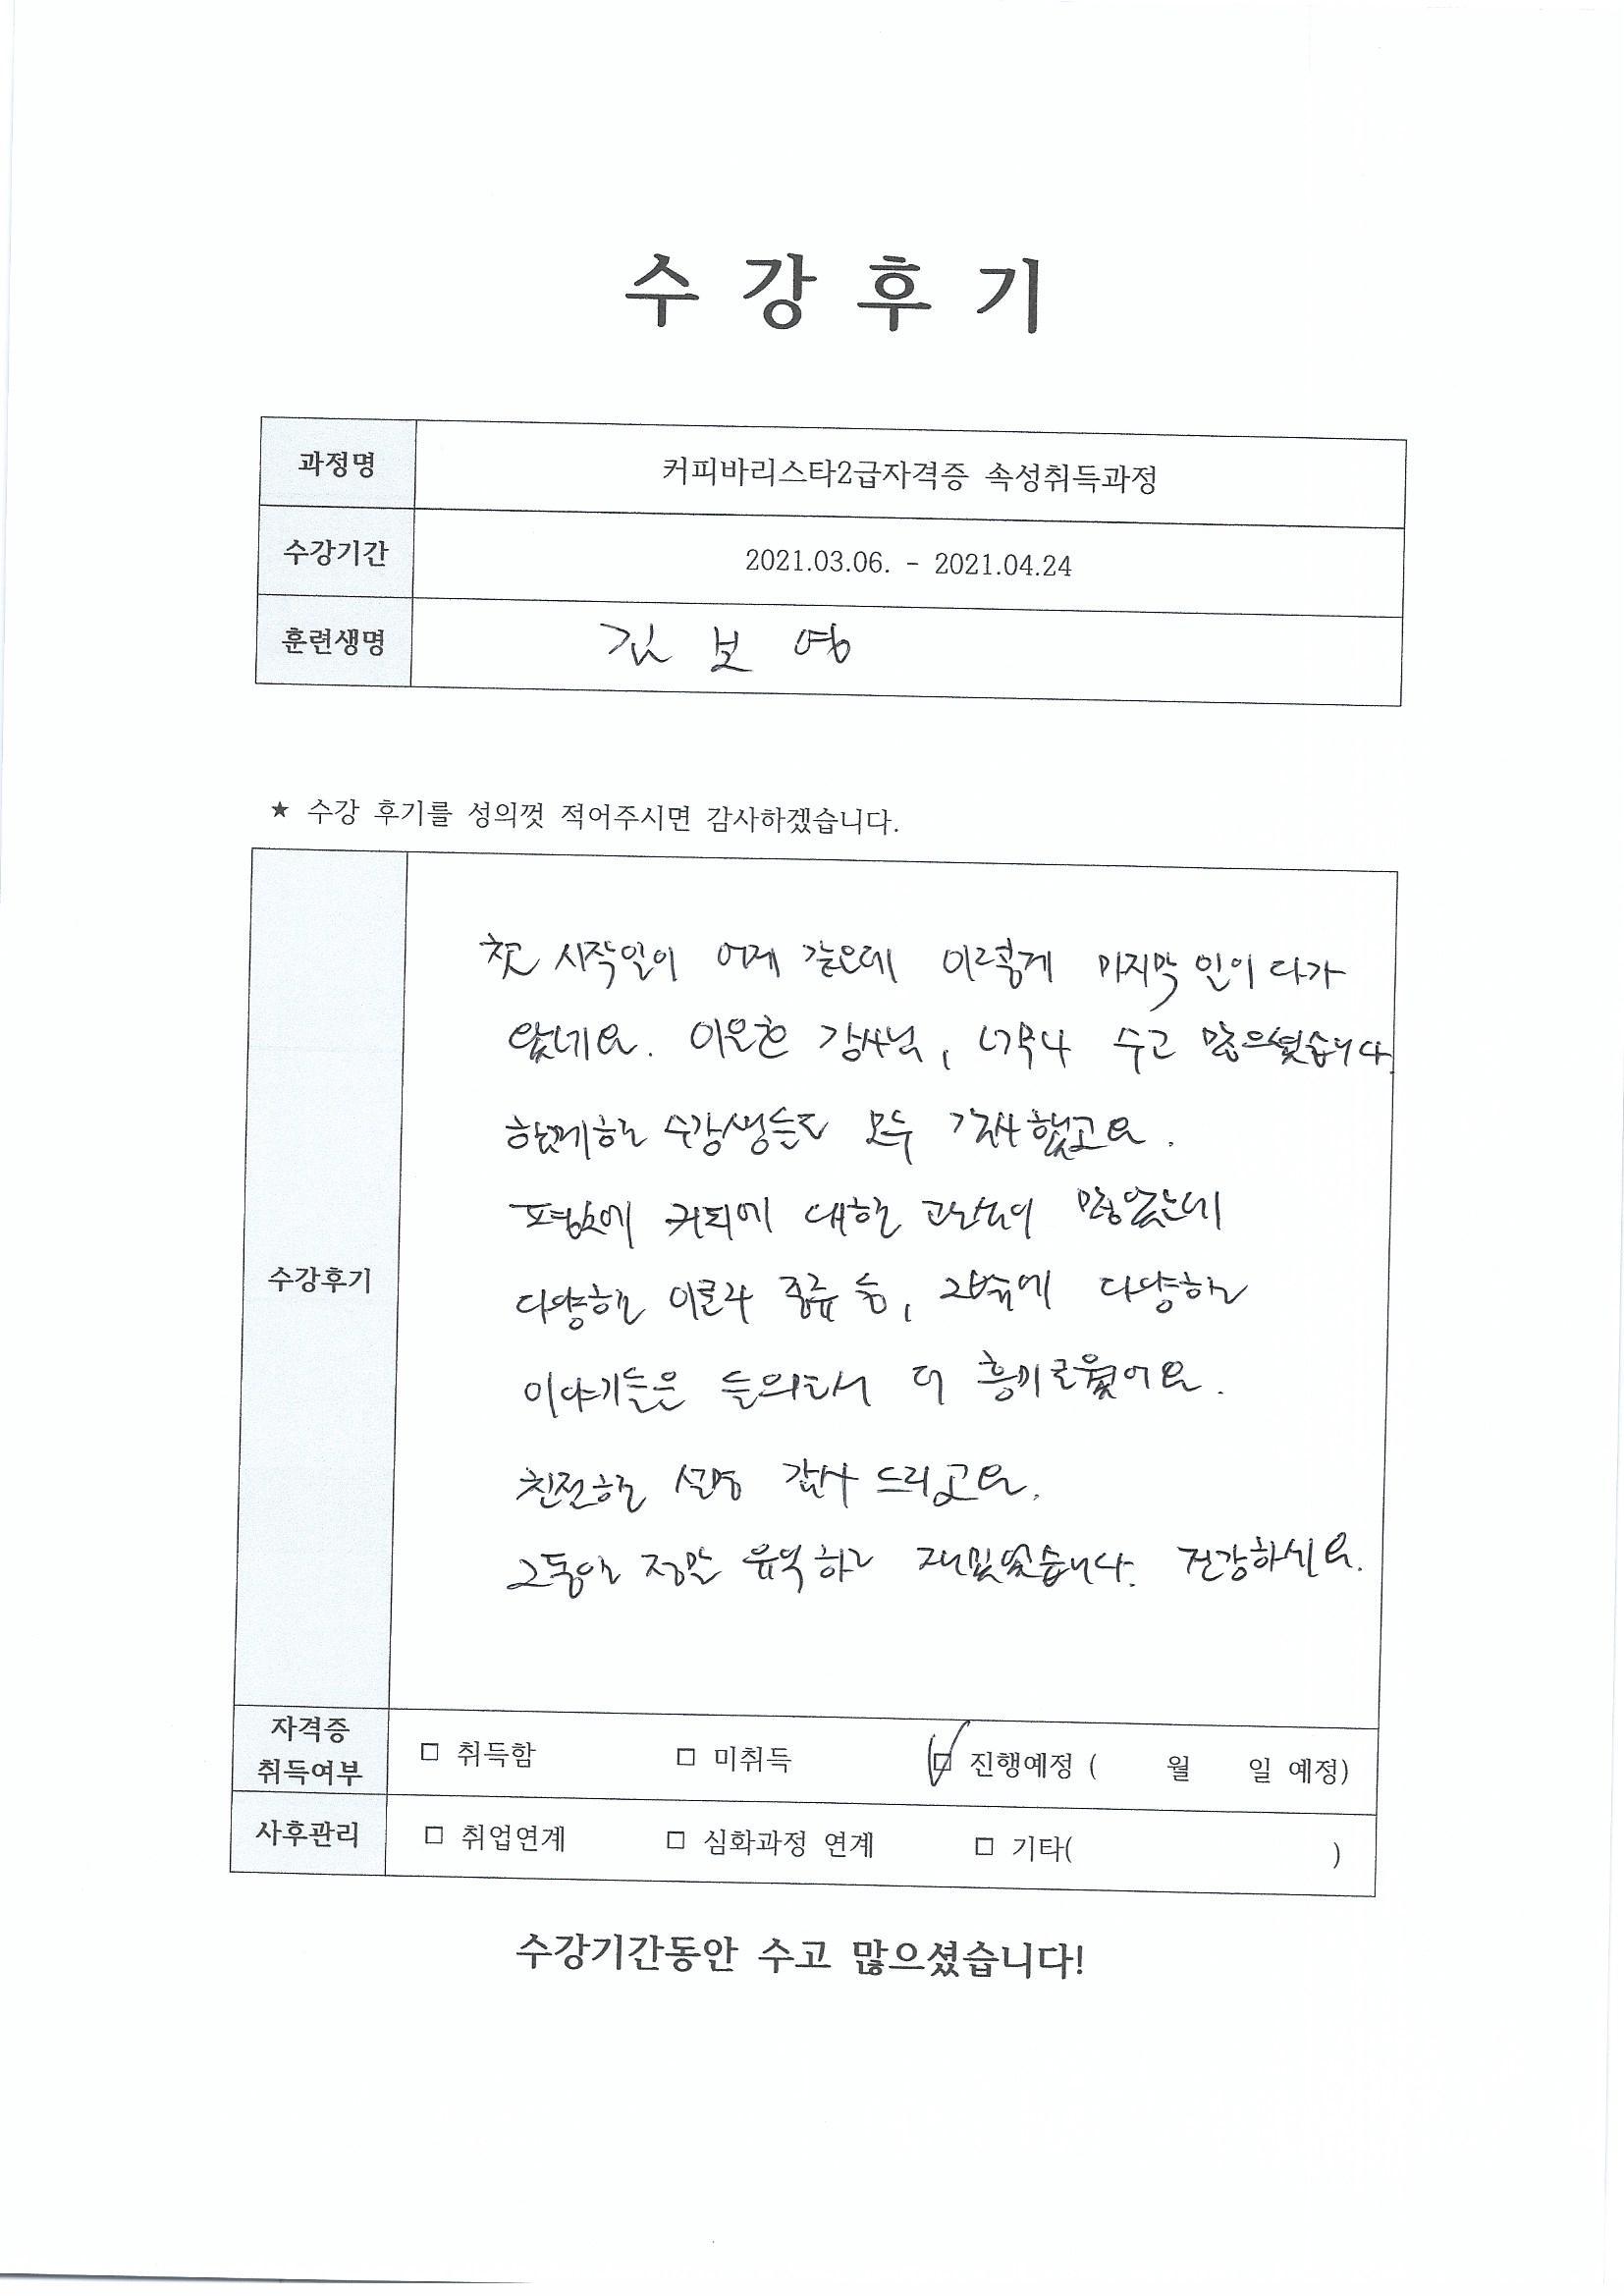 수 강 후 기
과정명 커피바리스타2급자격증 속성취득과정
수강기간 2021.03.06. - 2021.04.24
훈련생명 김 보 영
★ 수강 후기를 성의껏 적어주시면 감사하겠습니다.
수강후기
첫 시작일이 어제 같은데 이렇게 마지막 인이 다가
왔네요. 이은한 강사님, 너무나 수고 많으셨습니다.
함께한 수강생들도 모두 감사했고요.
평소에 커피에 대한 관심이 많았는데
다양한 이론과 종류 등, 그밖에 다양한
이야기들은 들으면서 더 흥미로웠어요.
친절한 설명 감사 드리고요.
그동안 정말 유익하고 재밌었습니다. 건강하세요.
자격증 취득여부 □ 취득함 □ 미취득 □ 진행예정 ( 월 일 예정)
사후관리 □ 취업연계 □ 심화과정 연계 □ 기타( )
수강기간동안 수고 많으셨습니다!